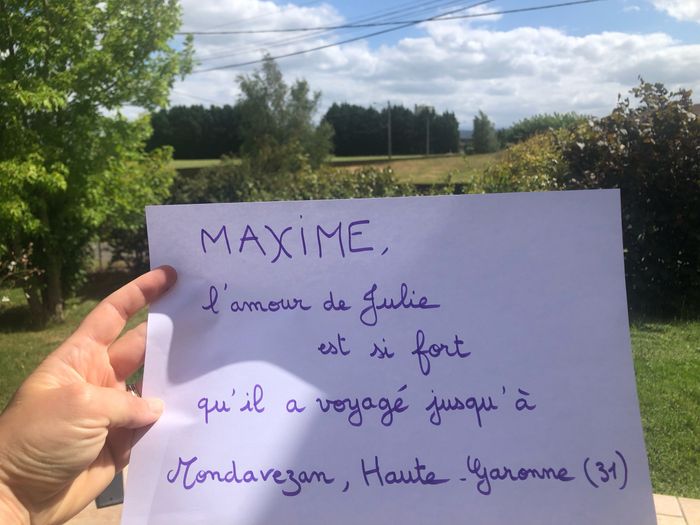 MAXIME,
l'amour de Julie
est si fort
qu'il a voyagé jusqu'à
Mondavezan, Haute-Garonne (31)